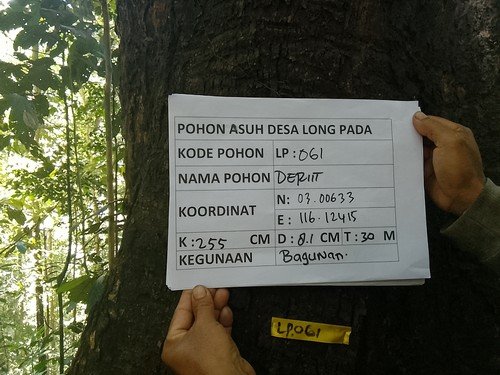 POHON ASUH DESA LONG PADA
KODE POHON LP : 061
NAMA POHON DERIIT
KOORDINAT N: 03.00633
E : 116.12415
K : 255 CM D : 81 CM T : 30 M
KEGUNAAN Bagunan.
LP.061